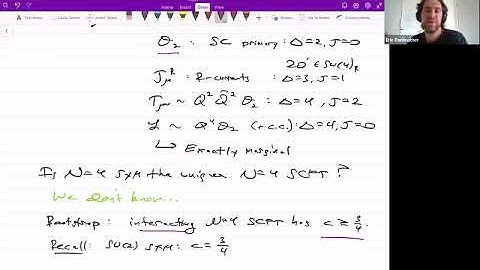 O₂ : SC primary : Δ=2, J=0
20' ∈ SU(4)_R
J_μ^R : R-currents : Δ=3, J=1
T_μν ~ Q² Q̄² O₂ : Δ=4, J=2
L ~ Q⁴ O₂ (+c.c.) : Δ=4, J=0
↳ Exactly marginal
Is N=4 SYM the unique N=4 SCFT ?
We don't know...
Bootstrap : interacting N=4 SCFT has c ≥ 3/4.
Recall: SU(2) SYM : c = 3/4